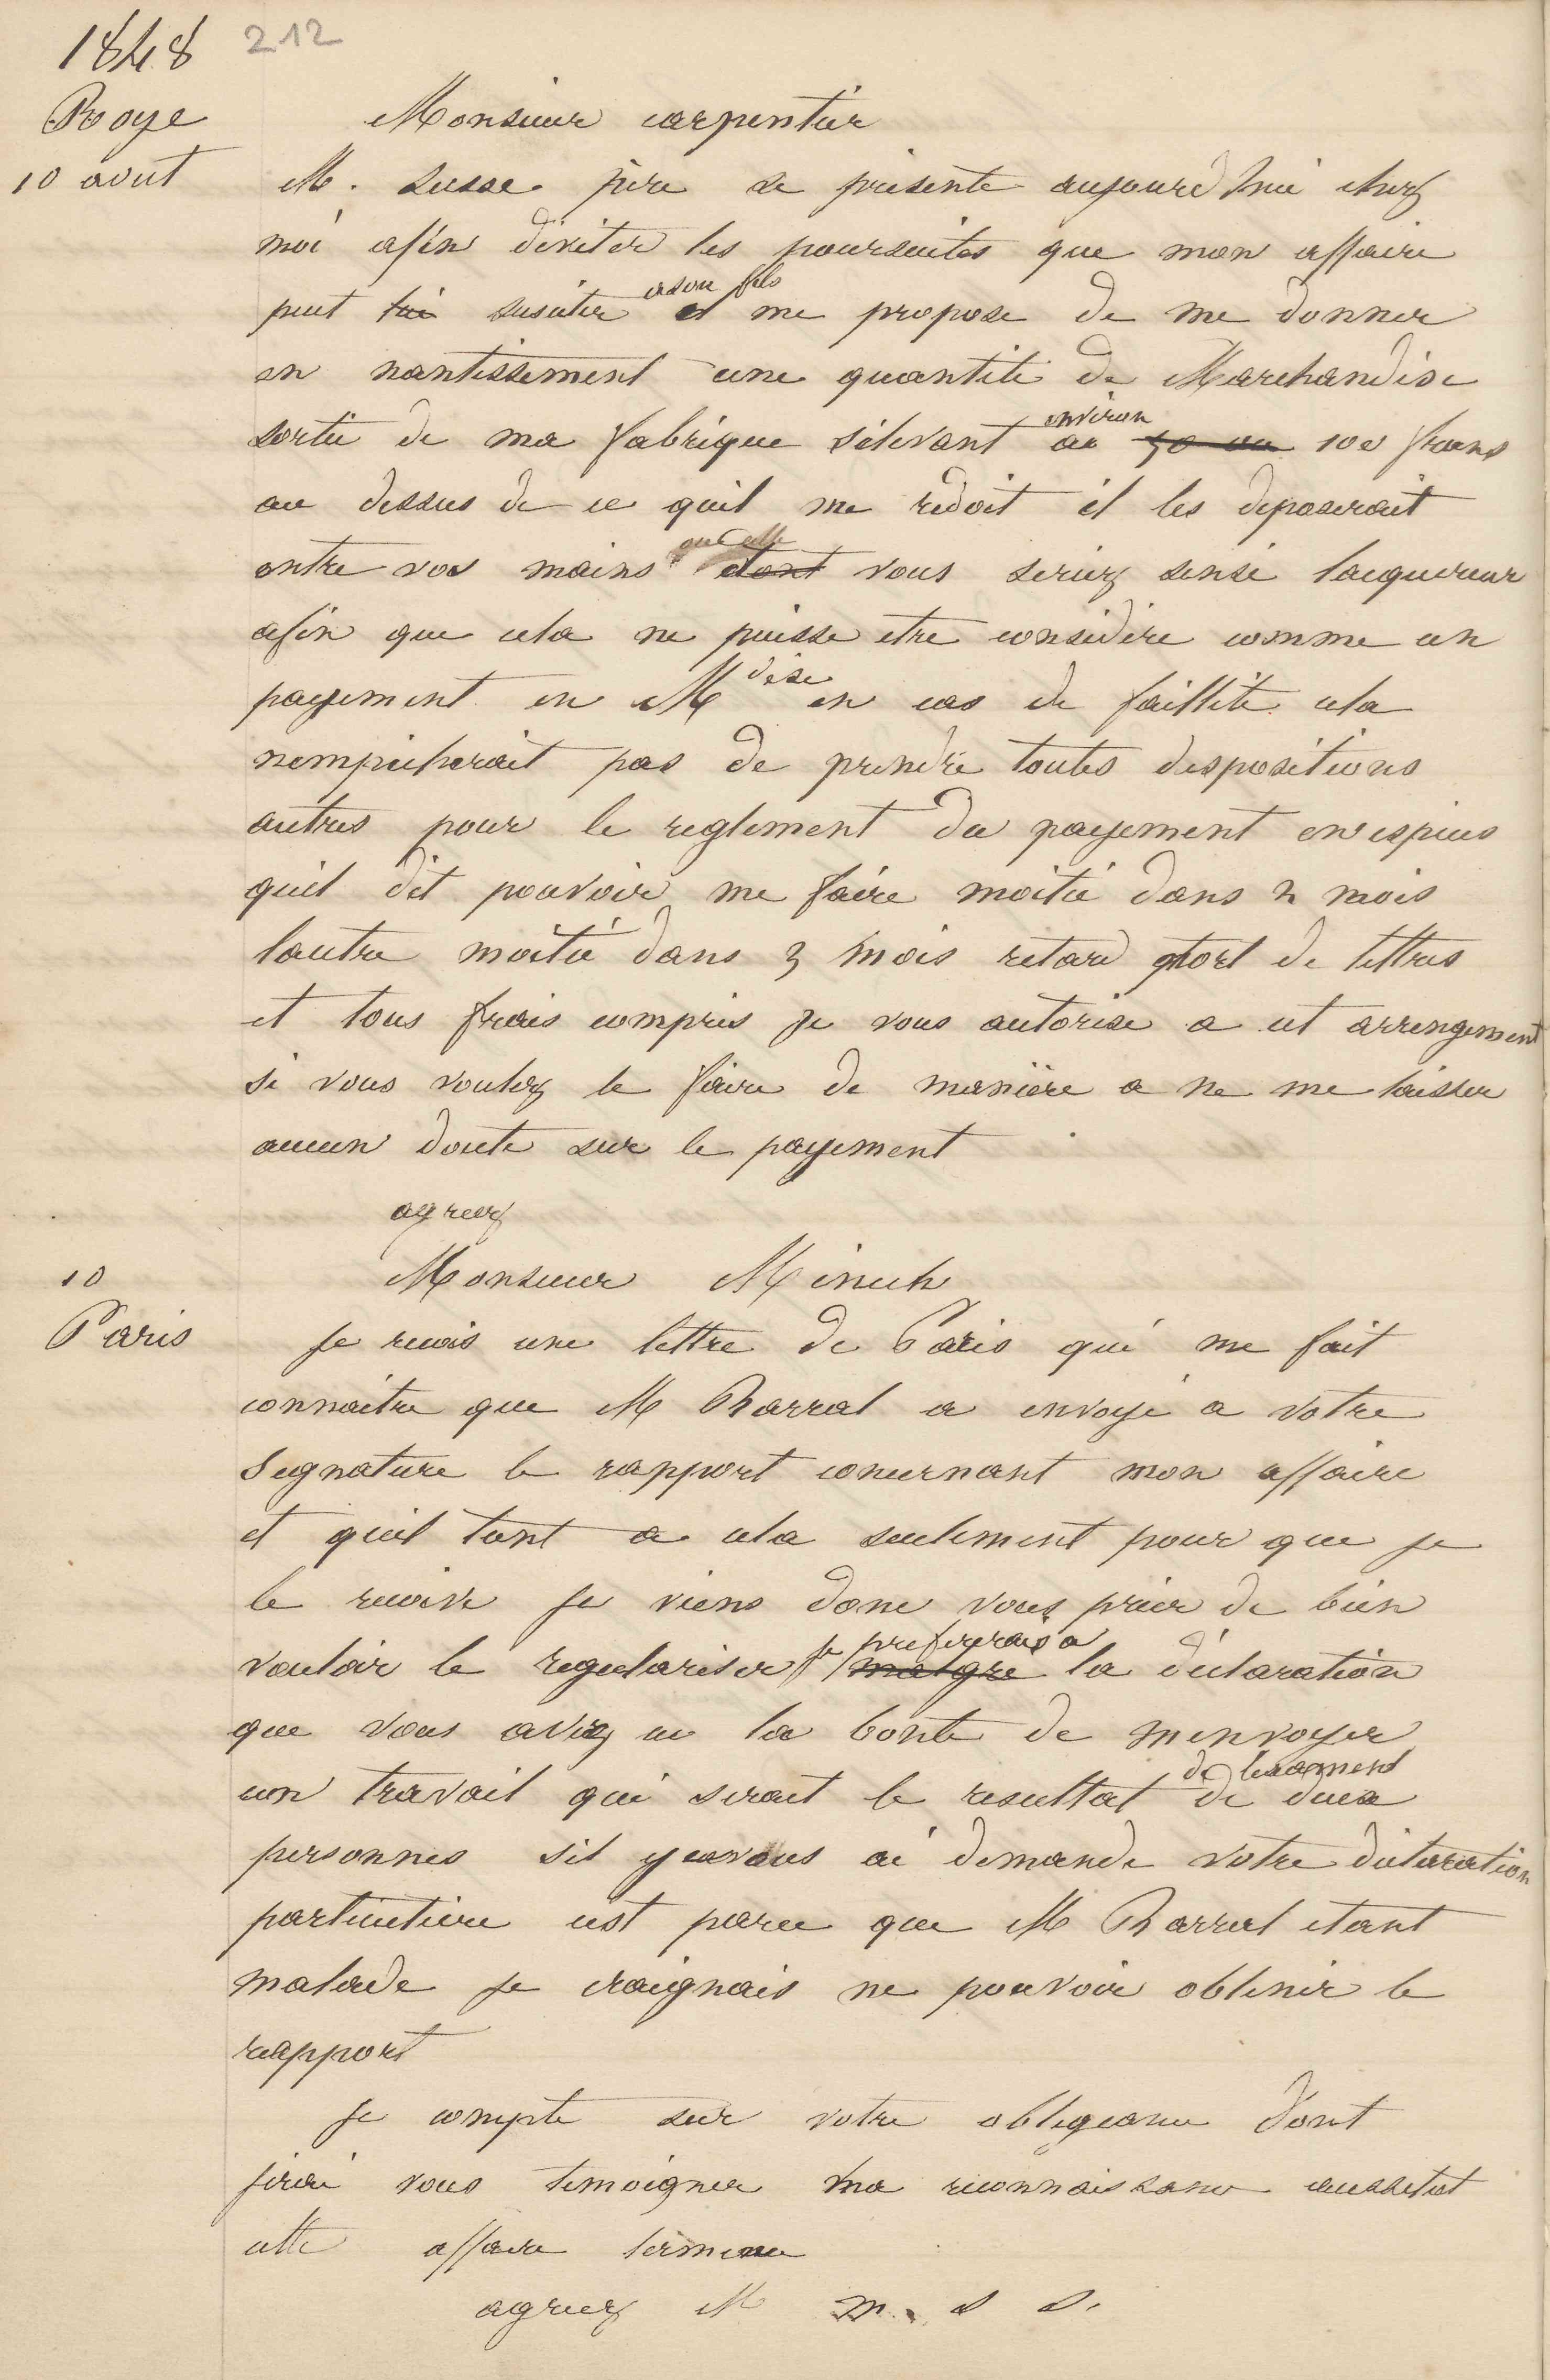 1848 212
Roye
10 aout
Monsieur carpentier
M. Susse père se présente aujourd'hui chez
moi afin d'eviter les poursuites que mon affaire
peut lui susciter a son fils et me propose de me donner
en nantissement une quantité de Marchandise
sortie de ma fabrique s'élevant au environ 50 ou 100 francs
au dessus de ce quil me redoit il les deposerait
entre vos mains dont vous seriez sensé lacquereur
afin que cela ne puisse etre considére comme un
payement en Mdise en cas de faillite cela
nempecherait pas de prendre toutes dispositions
autres pour le reglement du payement en especes
quil dit pouvoir me faire moitié dans 2 mois
lautre moitié dans 3 mois retard port de lettres
et tous frais compris je vous autorise a cet arrengement
si vous voulez le faire de manière a ne me laisser
aucun doute sur le payement
agreez
10
Paris
Monsieur Minich
Je recois une lettre de Paris qui me fait
connaitre que M Barral a envoyé a votre
signature le rapport concernant mon affaire
et quil tient a cela seulement pour que je
le recoive je viens donc vous prier de bien
vouloir le regulariser je prefererais a malgre la déclaration
que vous aviez eu la bonté de menvoyer
un travail qui serait le resultat de lexament de deux
personnes sil vous ai demande votre déclaration
particuliere cest parce que M Barral etant
malade je craignais ne pouvoir obtenir le
rapport
Je compte sur votre obligeance dont
jirai vous temoigner ma reconnaissance aussitot
cette affaire terminee
agreez M m. s s.